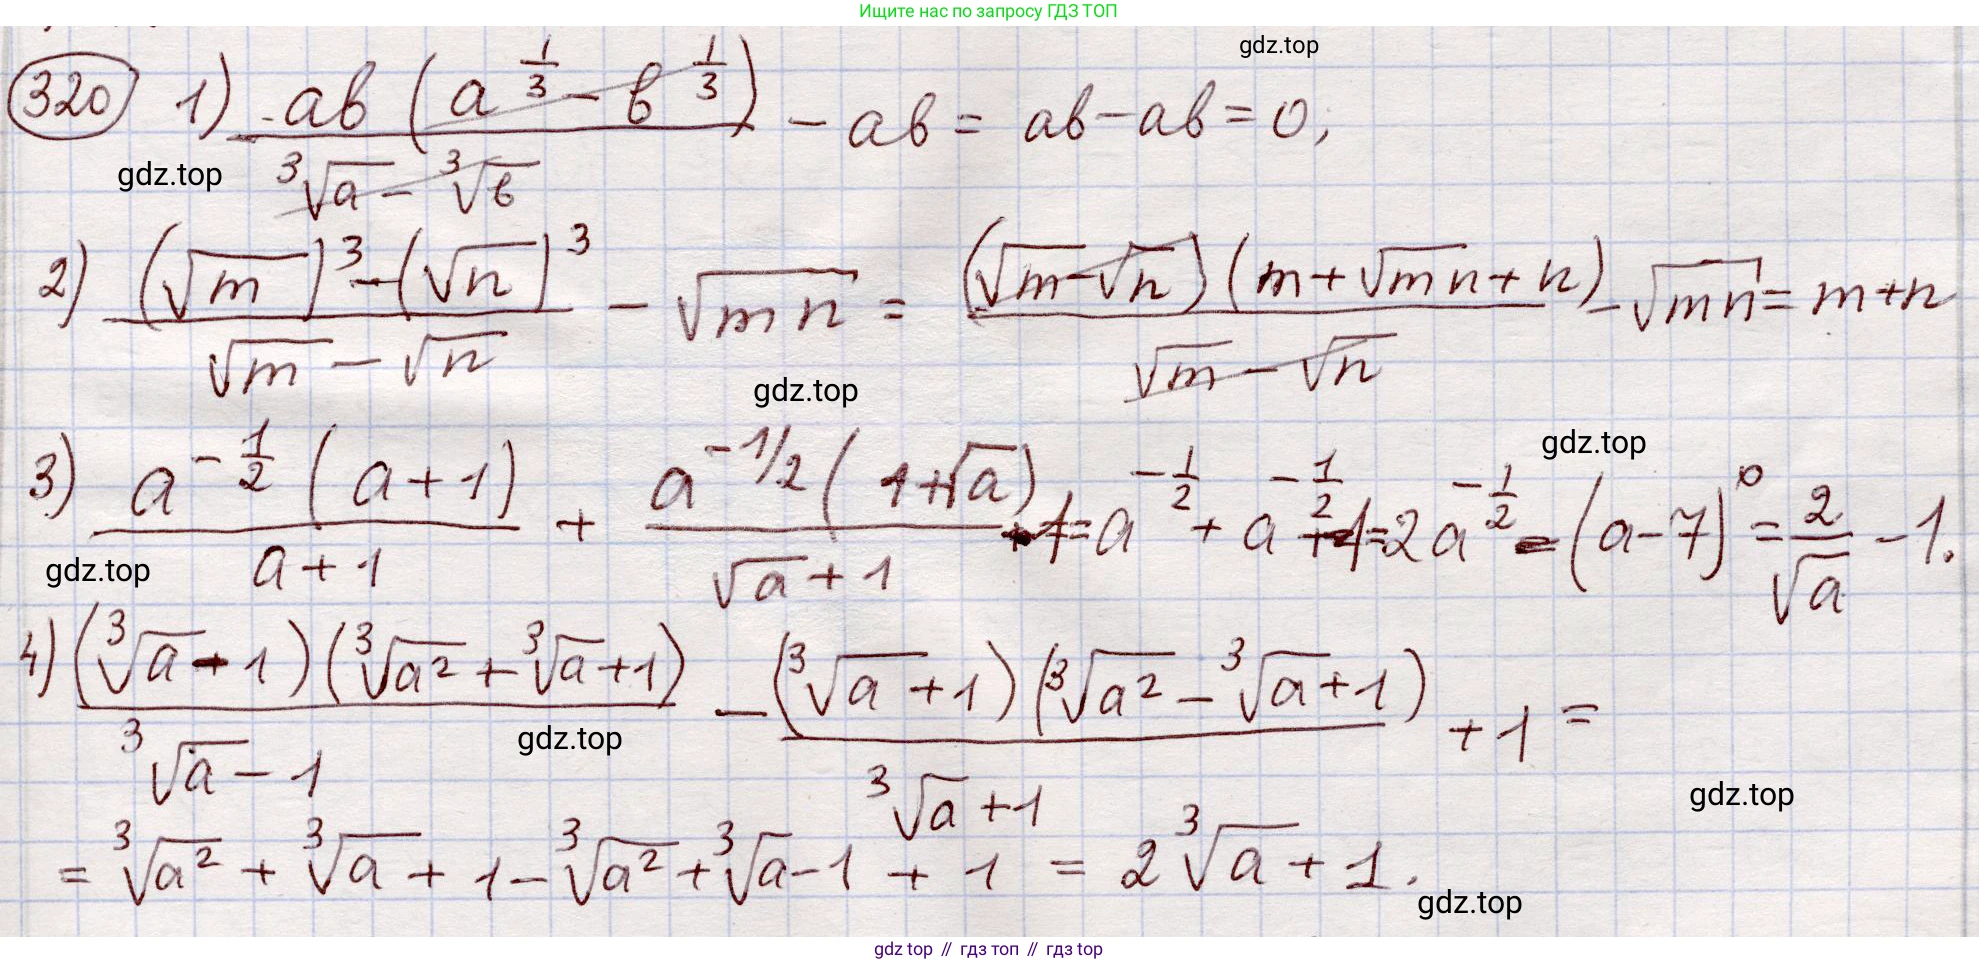 Ищите нас по запросу ГДЗ ТОП
gdz.top
320 1) ab (a^{1/3} - b^{1/3}) / (∛a - ∛b) - ab = ab - ab = 0;
gdz.top
2) ((√m)^3 - (√n)^3) / (√m - √n) - √mn = (√m - √n)(m + √mn + n) / (√m - √n) - √mn = m + n
gdz.top
gdz.top
3) a^{-1/2}(a+1) / (a+1) + a^{-1/2}(1+√a) / (√a+1) = a^{-1/2} + a^{-1/2} = 2a^{-1/2} - (a-7)^0 = 2/√a - 1.
gdz.top
4) (∛a - 1)(∛a² + ∛a + 1) / (∛a - 1) - (∛a + 1)(∛a² - ∛a + 1) / (∛a + 1) + 1 =
gdz.top
gdz.top
= ∛a² + ∛a + 1 - ∛a² + ∛a - 1 + 1 = 2∛a + 1.
gdz.top
gdz top // гдз топ // gdz top